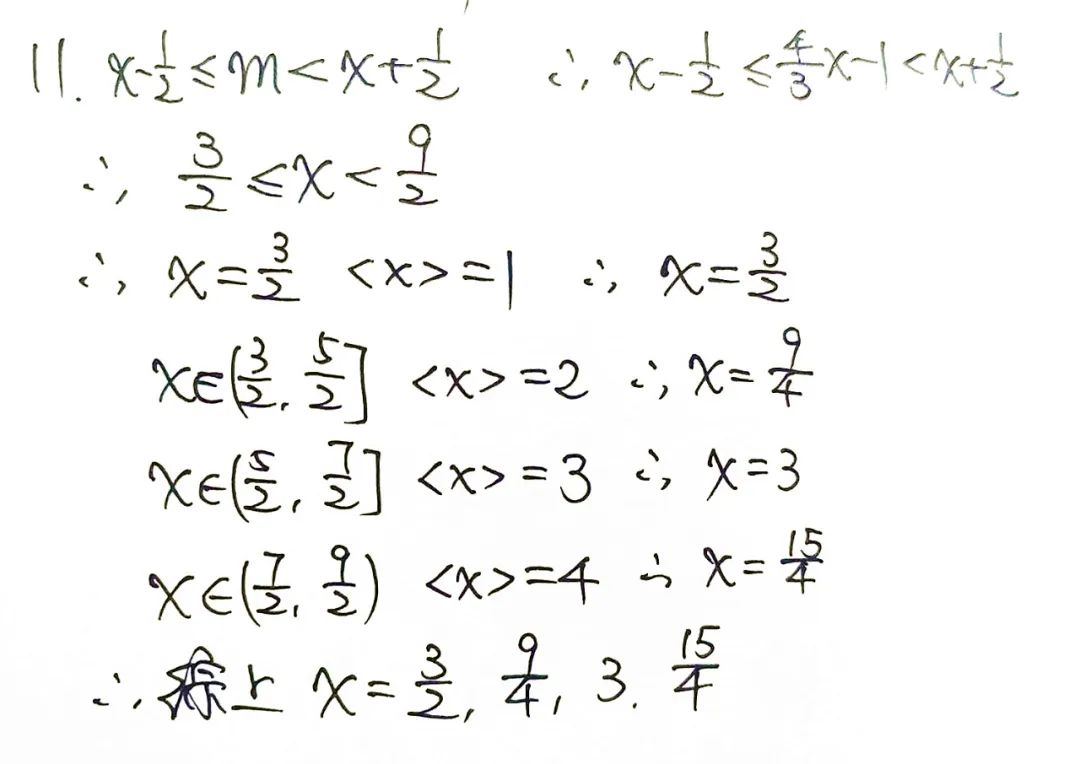 11. x-1/2 ≤ m < x+1/2 ∴ x-1/2 ≤ 4/3x-1 < x+1/2
∴, 3/2 ≤ x < 9/2
∴, x=3/2 <x>=1 ∴, x=3/2
x∈(3/2, 5/2] <x>=2 ∴, x=9/4
x∈(5/2, 7/2] <x>=3 ∴, x=3
x∈(7/2, 9/2) <x>=4 ∴ x=15/4
∴, 综上 x=3/2, 9/4, 3. 15/4